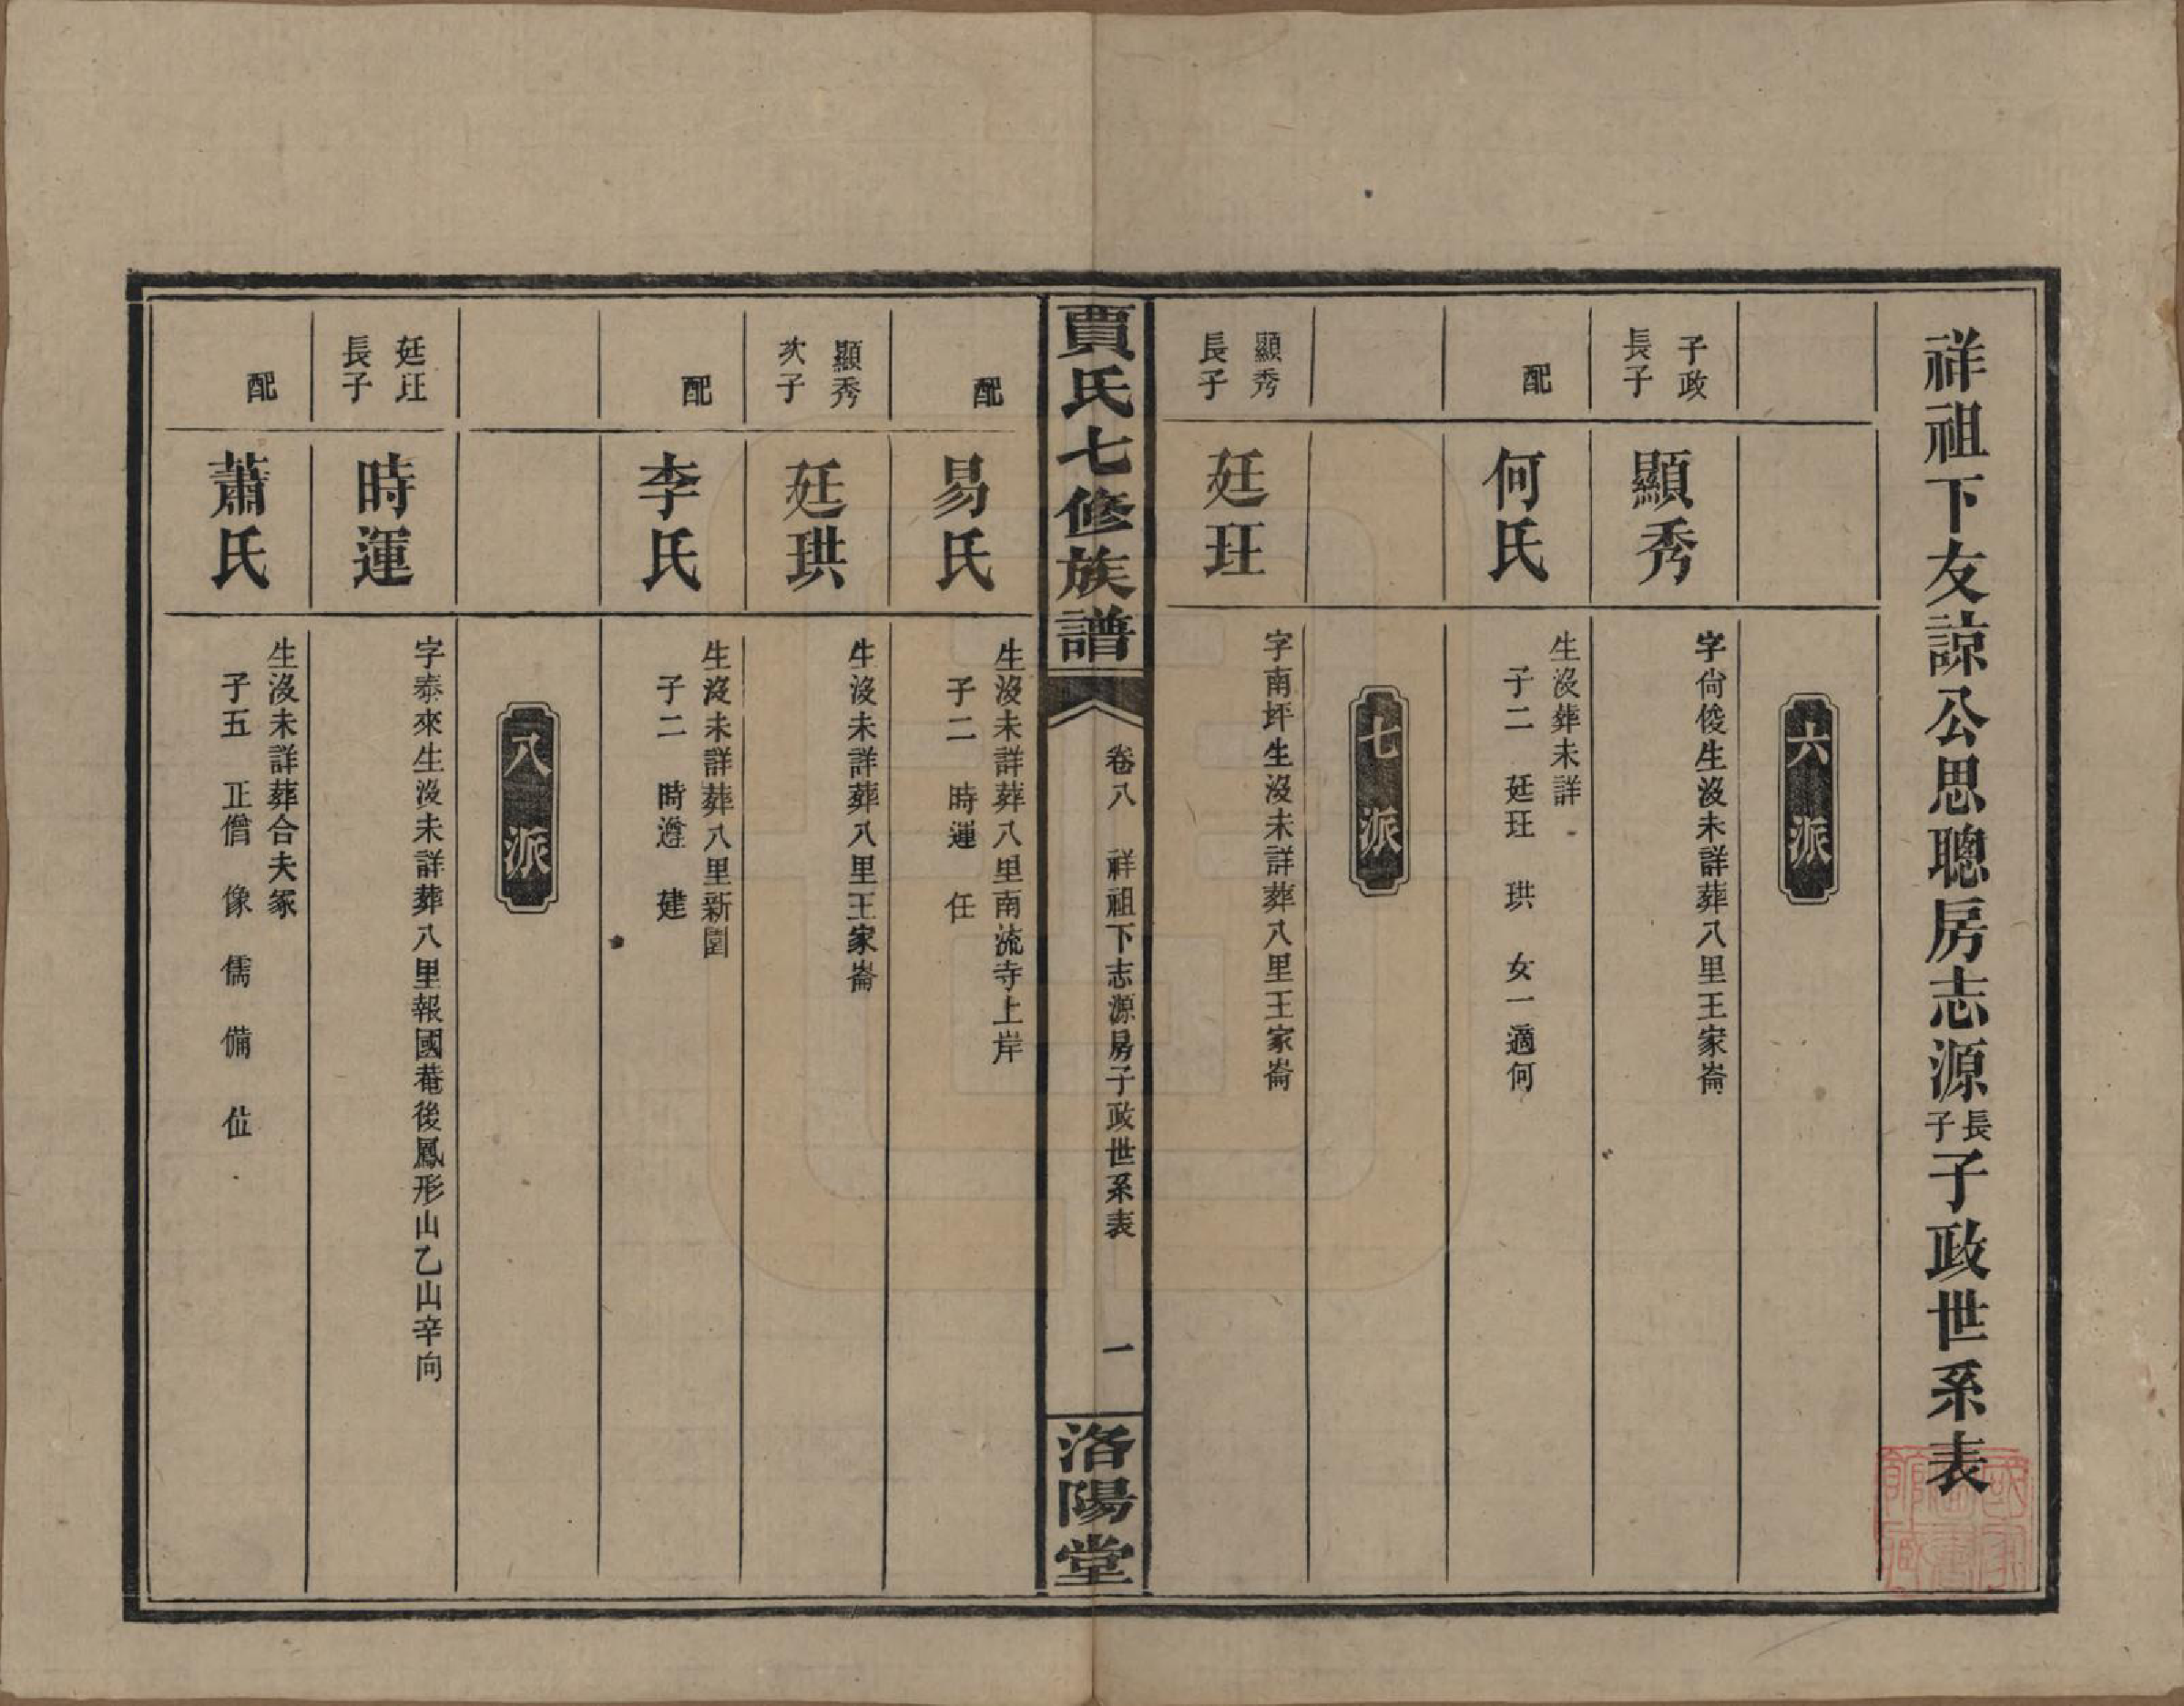 祥祖下友諒公思聰房志源長子子政世系表
六派
子政長子
顯秀
字尙俊生沒未詳葬八里王家崙
配
何氏
生沒葬未詳
子二 廷玨 珙 女一適何
七派
顯秀長子
廷玨
字南坪生沒未詳葬八里王家崙
賈氏七修族譜
卷八 祥祖下志源房子政世系表
一
洛陽堂
配
易氏
生沒未詳葬八里南流寺上岸
子二 時運 任
顯秀次子
廷珙
生沒未詳葬八里王家崙
配
李氏
生沒未詳葬八里新園
子二 時遵 建
八派
廷玨長子
時運
字泰來生沒未詳葬八里報國菴後鳳形山乙山辛向
配
蕭氏
生沒未詳葬合夫冢
子五 正僧 像 儒 備 位